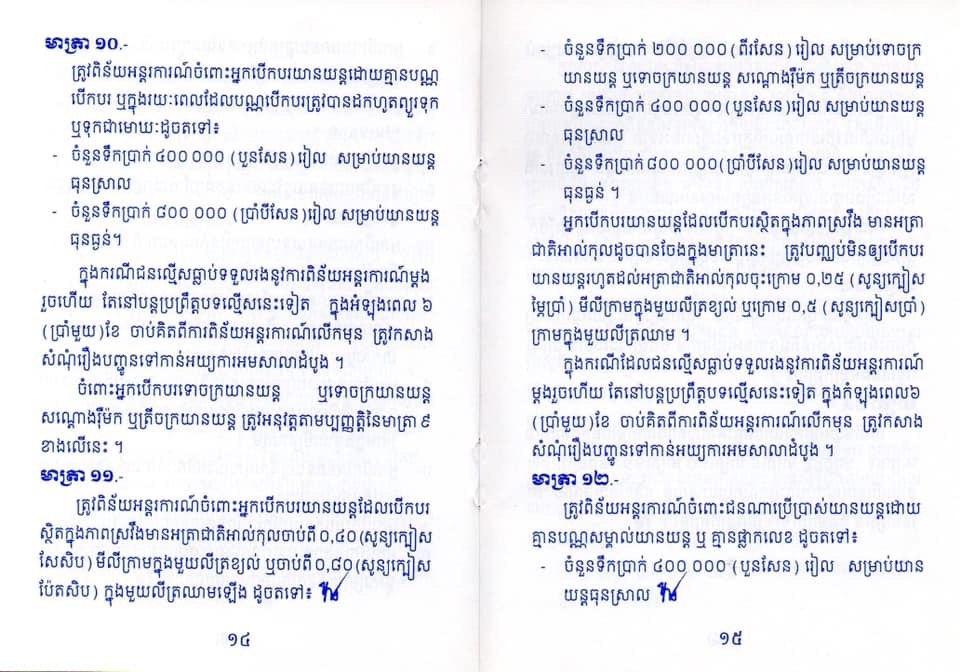 មាត្រា ១០.-
ត្រូវពិន័យអន្តរការណ៍ចំពោះអ្នកបើកបរយានយន្តដោយគ្មានបណ្ណ
បើកបរ ឬក្នុងរយៈពេលដែលបណ្ណបើកបរត្រូវបានដកហូតព្យួរទុក
ឬទុកជាមោឃៈដូចតទៅ៖
- ចំនួនទឹកប្រាក់ ៤០០ ០០០ (បួនសែន)រៀល សម្រាប់យានយន្ត
ធុនស្រាល
- ចំនួនទឹកប្រាក់ ៨០០ ០០០ (ប្រាំបីសែន)រៀល សម្រាប់យានយន្ត
ធុនធ្ងន់។
ក្នុងករណីជនល្មើសធ្លាប់ទទួលរងនូវការពិន័យអន្តរការណ៍ម្តង
រួចហើយ តែនៅបន្តប្រព្រឹត្តបទល្មើសនេះទៀត ក្នុងអំឡុងពេល ៦
(ប្រាំមួយ)ខែ ចាប់គិតពីការពិន័យអន្តរការណ៍លើកមុន ត្រូវកសាង
សំណុំរឿងបញ្ជូនទៅកាន់អយ្យការអមសាលាដំបូង ។
ចំពោះអ្នកបើកបរទោចក្រយានយន្ត ឬទោចក្រយានយន្ត
សណ្តោងរ៉ឺម៉ក ឬត្រីចក្រយានយន្ត ត្រូវអនុវត្តតាមប្បញ្ញត្តិនៃមាត្រា ៩
ខាងលើនេះ ។
មាត្រា ១១.-
ត្រូវពិន័យអន្តរការណ៍ចំពោះអ្នកបើកបរយានយន្តដែលបើកបរ
ស្ថិតក្នុងភាពស្រវឹងមានអត្រាជាតិអាល់កុលចាប់ពី ០,៤០(សូន្យក្បៀស
សែសិប) មីលីក្រាមក្នុងមួយលីត្រខ្យល់ ឬចាប់ពី ០,៨០ (សូន្យក្បៀស
ប៉ែតសិប) ក្នុងមួយលីត្រឈាមឡើង ដូចតទៅ៖
១៤
- ចំនួនទឹកប្រាក់ ២០០ ០០០ (ពីរសែន)រៀល សម្រាប់ទោចក្រ
យានយន្ត ឬទោចក្រយានយន្ត សណ្តោងរ៉ឺម៉ក ឬត្រីចក្រយានយន្ត
- ចំនួនទឹកប្រាក់ ៤០០ ០០០ (បួនសែន)រៀល សម្រាប់យានយន្ត
ធុនស្រាល
- ចំនួនទឹកប្រាក់ ៨០០ ០០០(ប្រាំបីសែន)រៀល សម្រាប់យានយន្ត
ធុនធ្ងន់ ។
អ្នកបើកបរយានយន្តដែលបើកបរស្ថិតក្នុងភាពស្រវឹង មានអត្រា
ជាតិអាល់កុលដូចបានចែងក្នុងមាត្រានេះ ត្រូវបញ្ឈប់មិនឲ្យបើកបរ
យានយន្តរហូតដល់អត្រាជាតិអាល់កុលចុះក្រោម ០,២៥ (សូន្យក្បៀស
ម្ភៃប្រាំ) មីលីក្រាមក្នុងមួយលីត្រខ្យល់ ឬក្រោម ០,៥ (សូន្យក្បៀសប្រាំ)
ក្រាមក្នុងមួយលីត្រឈាម ។
ក្នុងករណីដែលជនល្មើសធ្លាប់ទទួលរងនូវការពិន័យអន្តរការណ៍
ម្តងរួចហើយ តែនៅបន្តប្រព្រឹត្តបទល្មើសនេះទៀត ក្នុងកំឡុងពេល៦
(ប្រាំមួយ)ខែ ចាប់គិតពីការពិន័យអន្តរការណ៍លើកមុន ត្រូវកសាង
សំណុំរឿងបញ្ជូនទៅកាន់អយ្យការអមសាលាដំបូង ។
មាត្រា ១២.-
ត្រូវពិន័យអន្តរការណ៍ចំពោះជនណាប្រើប្រាស់យានយន្តដោយ
គ្មានបណ្ណសម្គាល់យានយន្ត ឬ គ្មានផ្លាកលេខ ដូចតទៅ៖
- ចំនួនទឹកប្រាក់ ៤០០ ០០០ (បួនសែន)រៀល សម្រាប់យាន
យន្តធុនស្រាល
១៥